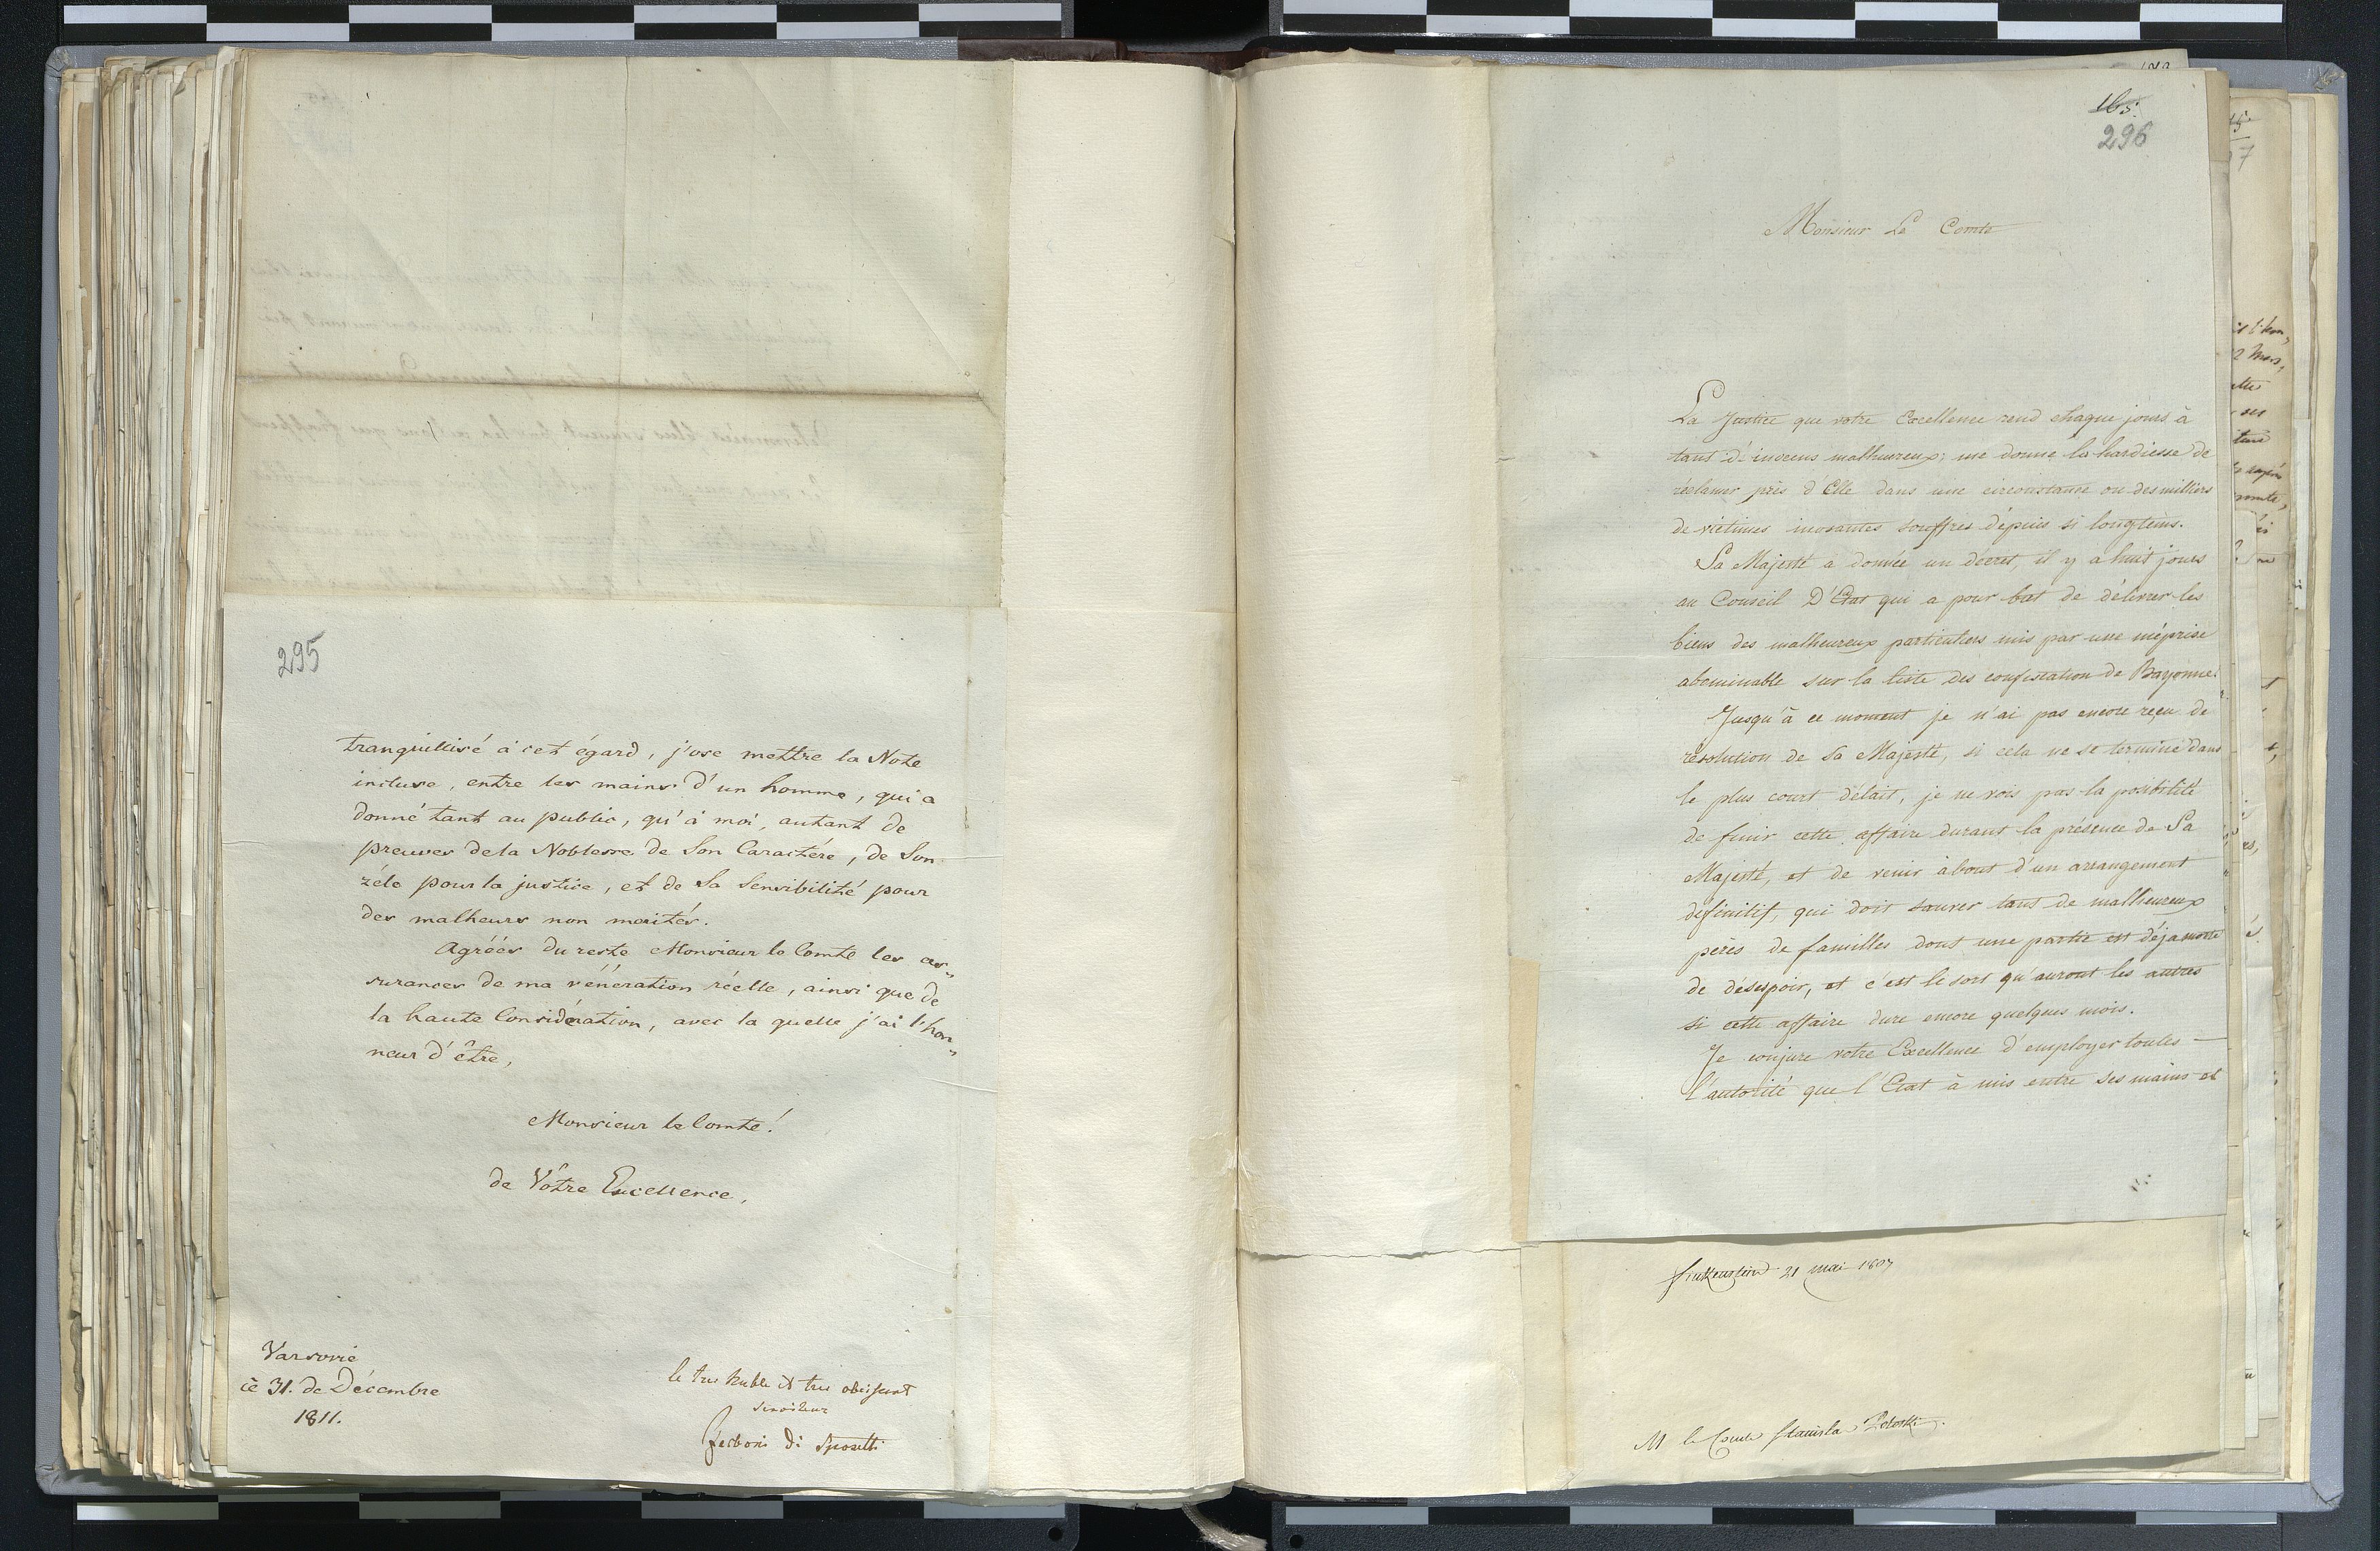 295
tranquillisé à cet égard, j'ose mettre la Note
incluse, entre les mains d'un homme, qui a
donné tant au public, qu'à moi, autant de
preuves de la Noblesse de Son Caractére, de Son
zéle pour la justice, et de Sa Sensibilité pour
des malheurs non merités.
Agréés du reste Monsieur le Comte les as„
surances de ma vénération réelle, ainsi que de
la haute Considération, avec la quelle j'ai l'hon„
neur d'être,
Monsieur le Comte!
de Vôtre Excellence,
Varsovie
ce 31. de Décembre
1811.
le tres humble et tres obeissant
serviteur
Zerboni di Sposetti
165.
296
Monsieur Le Comte
La Justice que votre Excellence rend chaque jours à
tant d'inocens malheureux; me donne la hardiesse de
réclamer près d'Elle dans une circonstance ou des milliers
de victimes inosantes souffres dépuis si longtems.
Sa Majesté a donnée un décret, il y a huit jours
au Conseil D'Etat qui a pour but de délivrer les
biens des malheureux particuliers mis par une méprise
abominable sur la liste des confiscation de Bayonne.
Jusqu'à ce moment je n'ai pas encore reçu de
résolution de Sa Majesté, si cela ne se termine dans
le plus court délait, je ne vois pas la posibilité
de finir cette affaire durant la présence de Sa
Majesté, et de venir àbout d'un arrangement
définitif, qui doit sauver tant de malheureux
peres de familles dont une partie est déja morte
de désespoir, et c'est le sort qu'auront les autres
si cette affaire dure encore quelques mois.
Je conjure votre Excellence d'employer toutes
l'autorité que l'Etat à mis entre ses mains et
Finkenstein 21 mai 1807
M le Comte Stanislas Potoski.